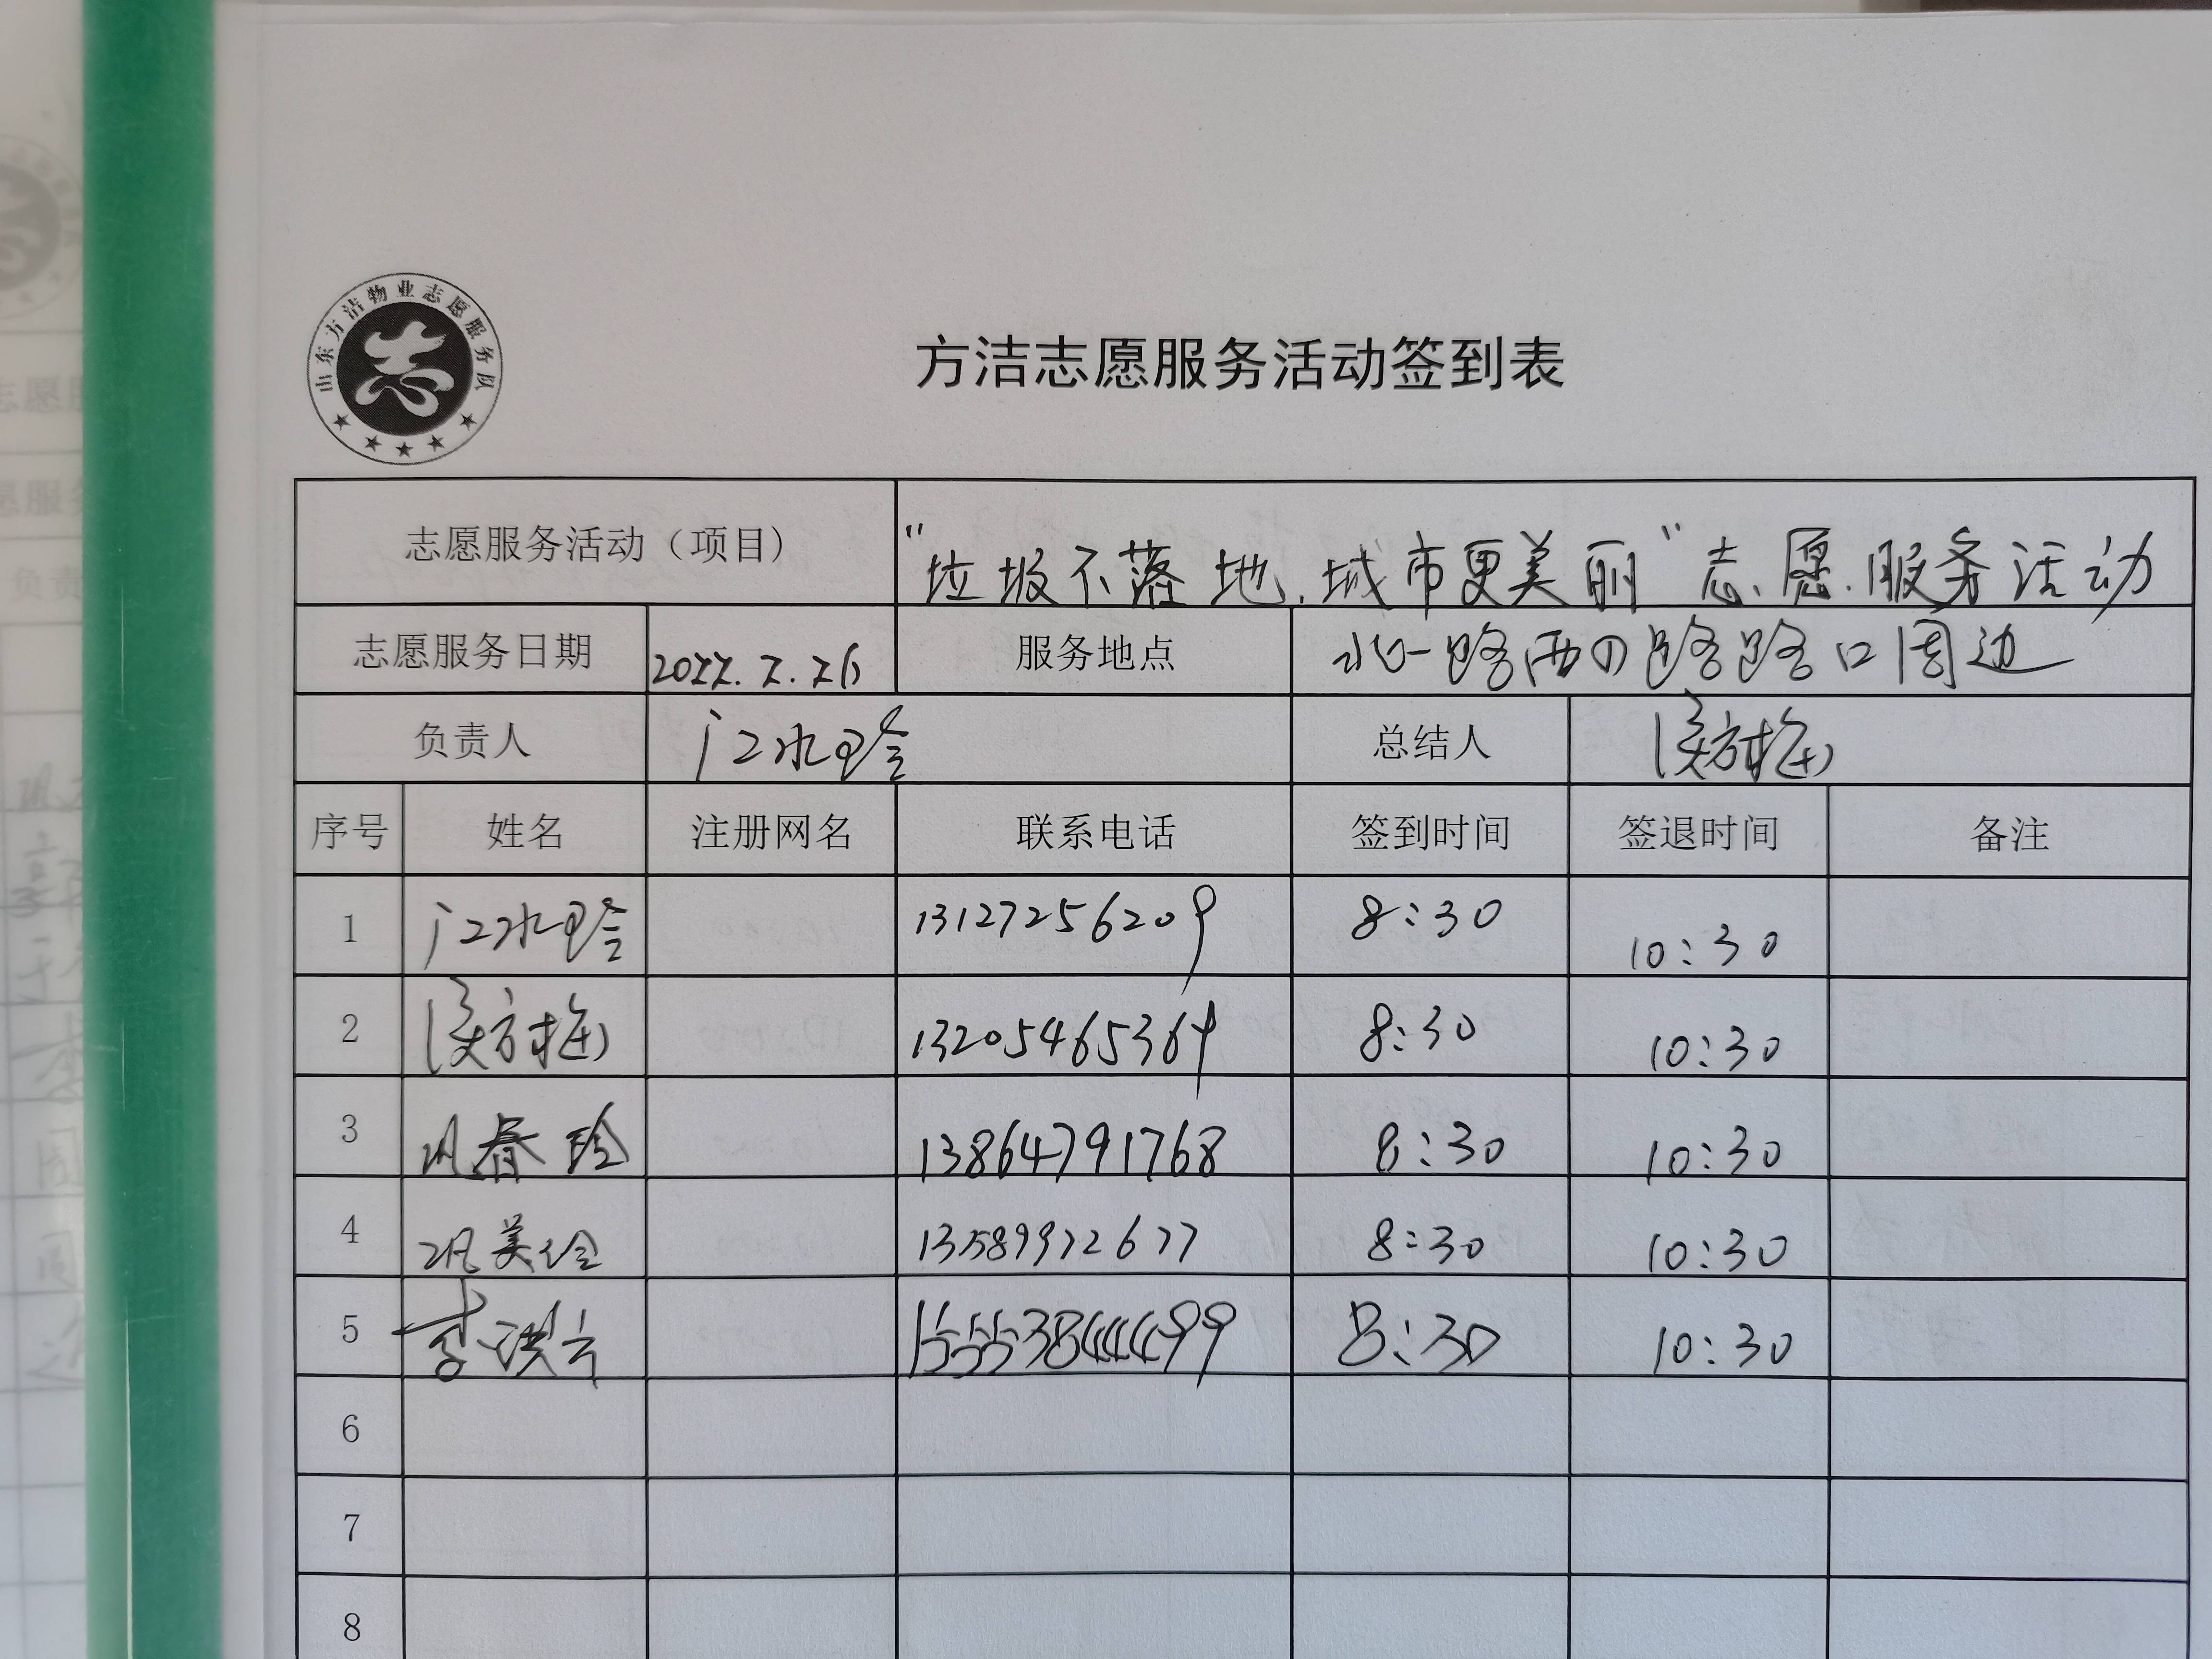 山东方洁物业志愿服务队
方洁志愿服务活动签到表
志愿服务活动（项目） “垃圾不落地.城市更美丽”志愿服务活动
志愿服务日期 2022.7.26 服务地点 北一路西四路路口周边
负责人 江水玲 总结人 侯方梅
序号 姓名 注册网名 联系电话 签到时间 签退时间 备注
1 江水玲 13127256209 8:30 10:30
2 侯方梅 13205465369 8:30 10:30
3 巩春玲 13864791768 8:30 10:30
4 巩美玲 13589972677 8:30 10:30
5 李洪云 15553844499 8:30 10:30
6
7
8